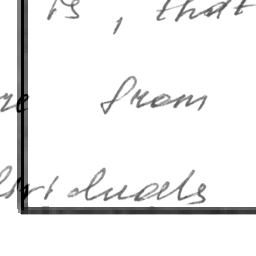 is, that
re from
dividuals